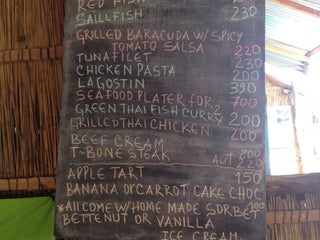 RED FIS
SAILLFISH 230
GRILLED BARACUDA W/ SPICY
TOMATO SALSA 220
TUNAFILET 230
CHICKEN PASTA 200
LAGOSTIN 390
SEAFOOD PLATER FOR 2 700
GREEN THAI FISH CURRY 200
GRILLED THAI CHICKEN 200
BEEF CREAM 200
T-BONE STEAK 220
APPLE TART 150
BANANA OR CARROT CAKE CHOC
*All COME W/ HOME MADE SORBET 100
BETTENUT OR VANILLA
ICE CREAM